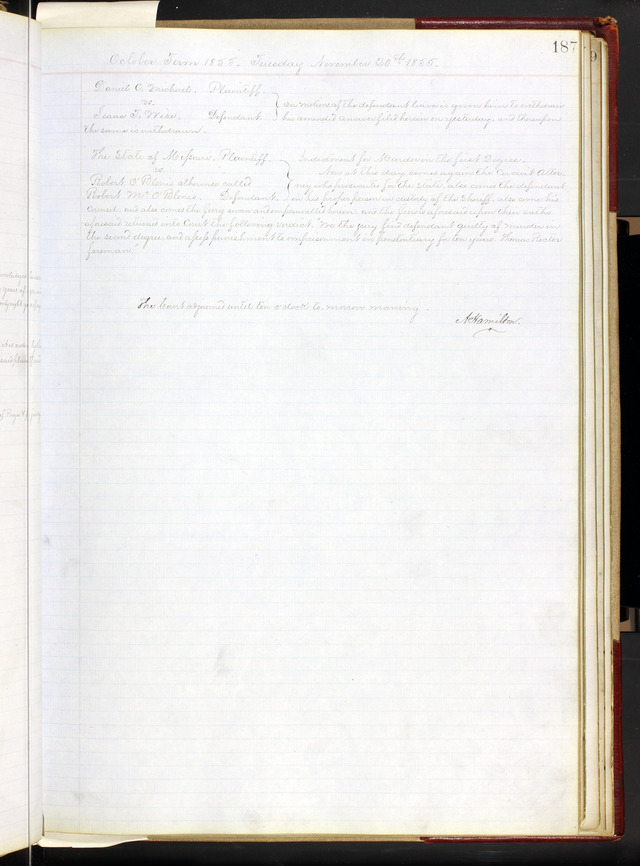 187
9
October Term 1855. Tuesday November 20th 1855.
Daniel C. Plaintiff
vs.
Isaac T. Wise, Defendant
on motion of the defendant leave is given him to withdraw
his amended answer filed herein on yesterday, and thereupon
the same is withdrawn.
The State of Missouri, Plaintiff
vs
Robert O'Blenis otherwise called
Robert McO'Blenis, Defendant.
Indictment for Murder in the First Degree.
Now at this day comes again the Circuit Attor
ney who prosecutes for the State, also comes the defendant
in his proper person in custody of the Sheriff, also come his
Counsel and also comes the jury sworn and empannelled herein, and the jurors aforesaid upon their oaths
aforesaid returned into Court the following verdict. "We the jury find defendant guilty of murder in
the second degree and assess punishment to imprisonment in penitentiary for ten years. Rector
foreman."
The Court adjourned until ten o'clock to-morrow morning.
A Hamilton.